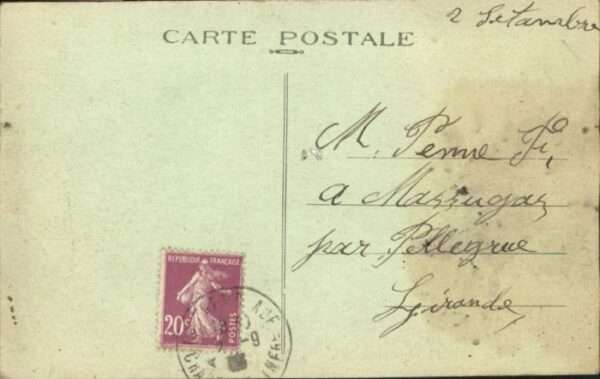 2 Setambre
CARTE POSTALE
M. Penne Fi,
a Massugas
par Pellegrue
Gironde,
REPUBLIQUE FRANÇAISE
20c
POSTES